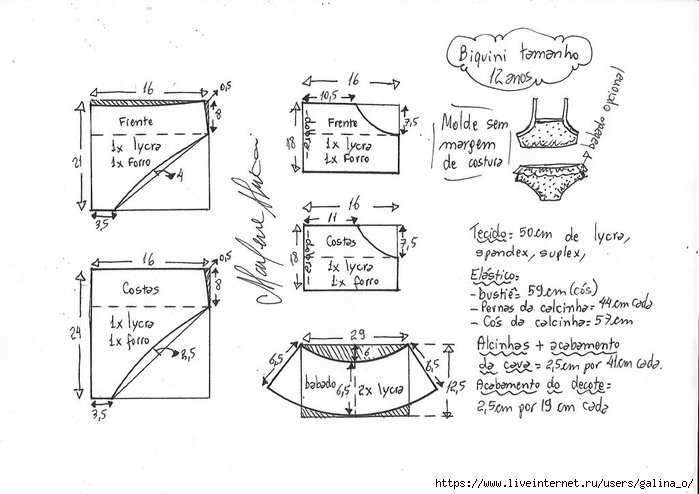 Biquini tamanho
12 anos
babado opcional
Molde sem
margem
de costura
16
0,5
8
Frente
1x lycra
1x forro
21
4
3,5
16
10,5
7,5
18
-dobra-
Frente
1x lycra
1x forro
16
11
7,5
18
-dobra-
Costas
1x lycra
1x forro
16
0,5
8
Costas
1x lycra
1x forro
24
2,5
3,5
29
6
6,5
6,5
6,5
12,5
babado
2x lycra
Tecido= 50cm de lycra,
spandex, suplex,
Elástico:
- bustiê= 59cm (cós)
- Pernas da calcinha= 44cm cada
- Cós da calcinha= 57cm
Alcinhas + acabamento
da cava = 2,5cm por 41cm cada.
Acabamento do decote=
2,5cm por 19 cm cada
https://www.liveinternet.ru/users/galina_o/